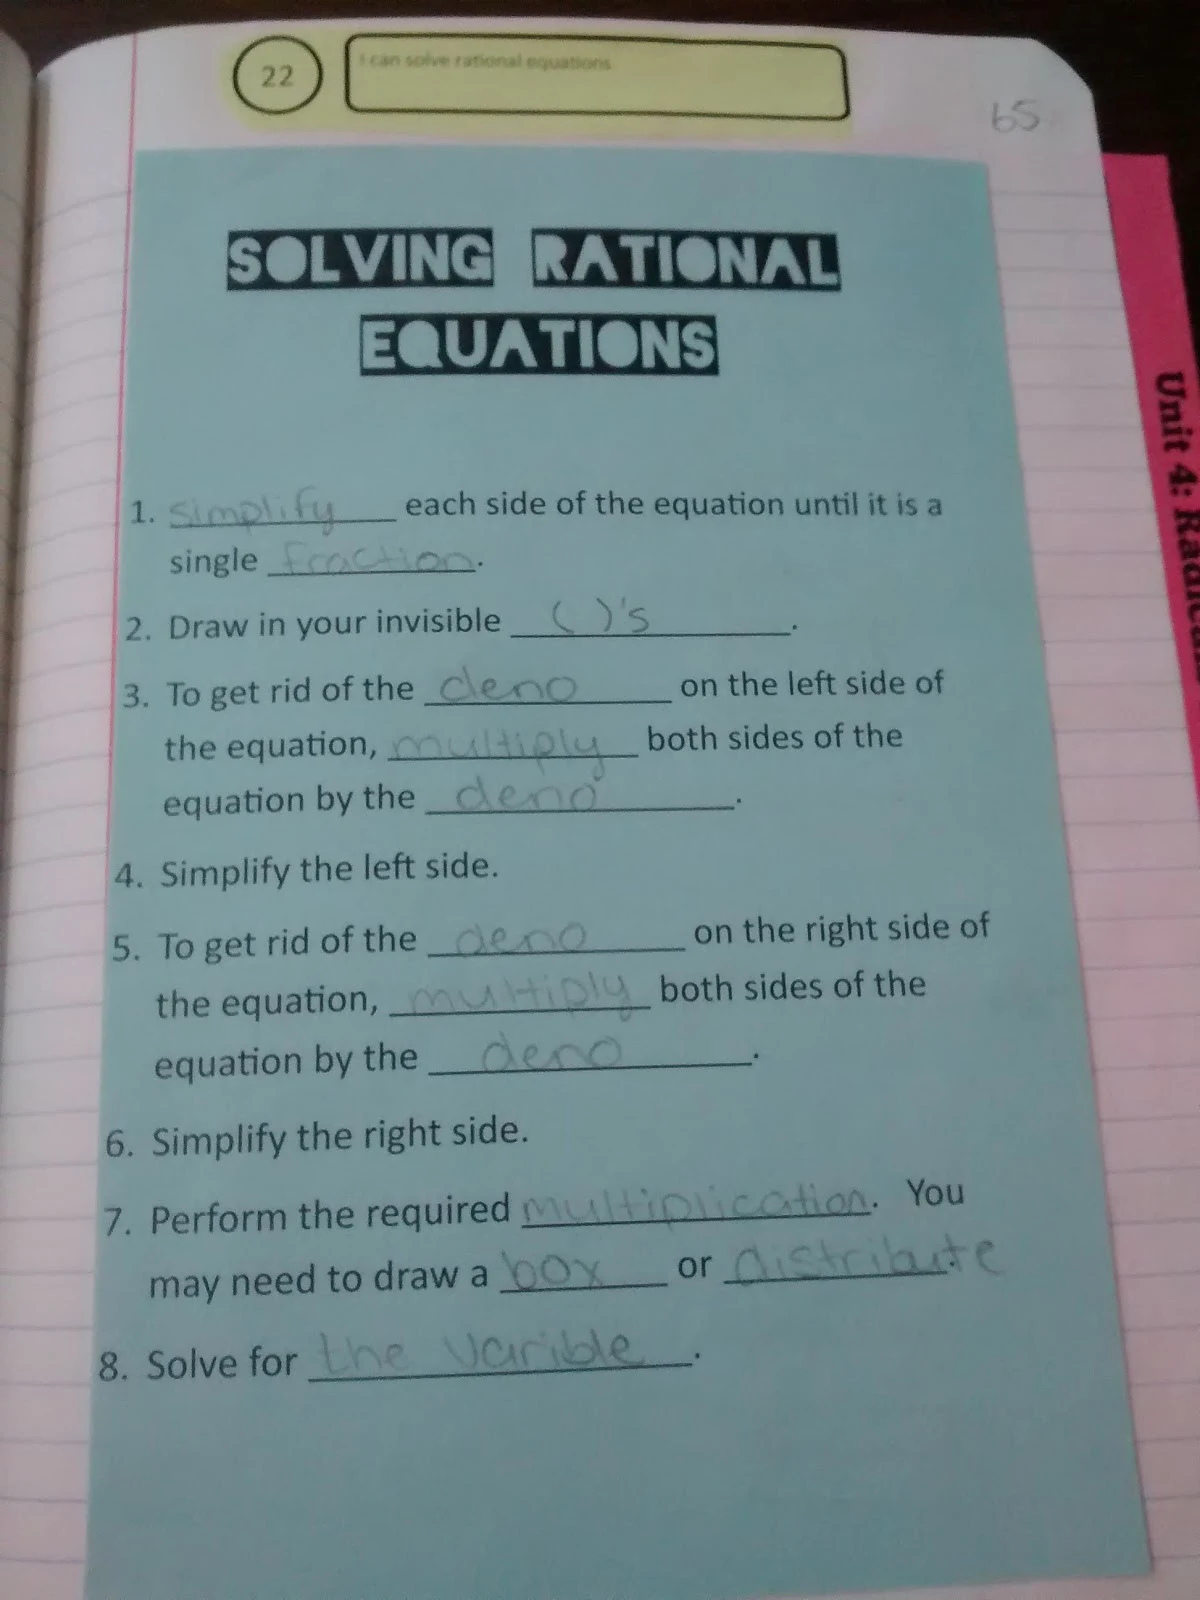 22
I can solve rational equations
65
SOLVING RATIONAL
EQUATIONS
1. simplify each side of the equation until it is a
single fraction.
2. Draw in your invisible ( )'s.
3. To get rid of the deno on the left side of
the equation, multiply both sides of the
equation by the deno.
4. Simplify the left side.
5. To get rid of the deno on the right side of
the equation, multiply both sides of the
equation by the deno.
6. Simplify the right side.
7. Perform the required multiplication. You
may need to draw a box or distribute.
8. Solve for the varible.
Unit 4: